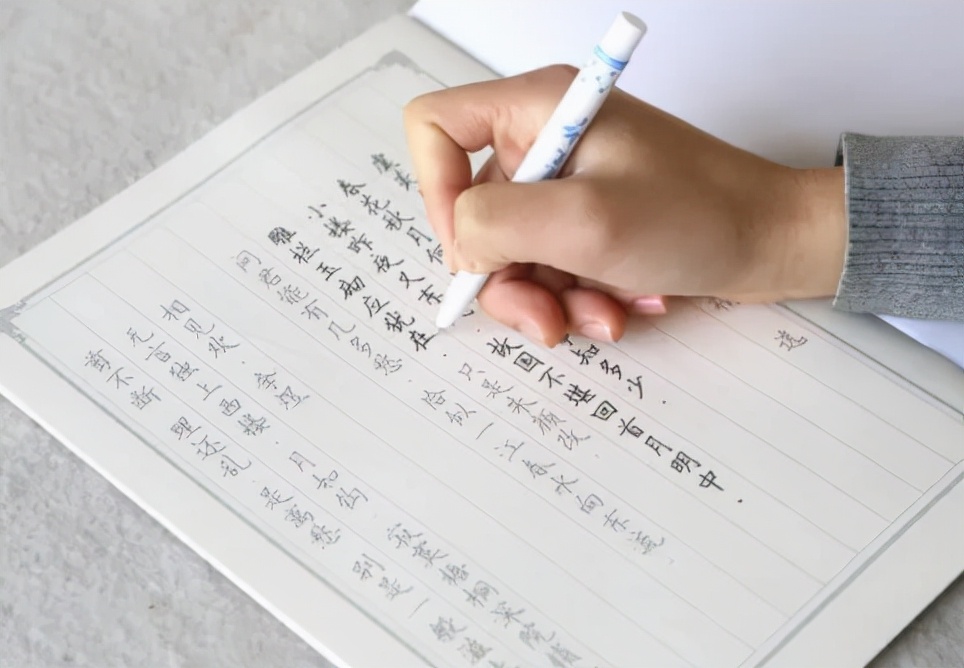 选
虞美
春花秋月何 事知多少。
小楼昨夜又东 故国不堪回首月明中。
雕栏玉砌应犹在。只是朱颜改。
问君能有几多愁。恰似一江春水向东流。
相见欢
无言独上西楼。月如钩。寂寞梧桐深院锁
剪不断 理还乱 是离愁 别是一般滋